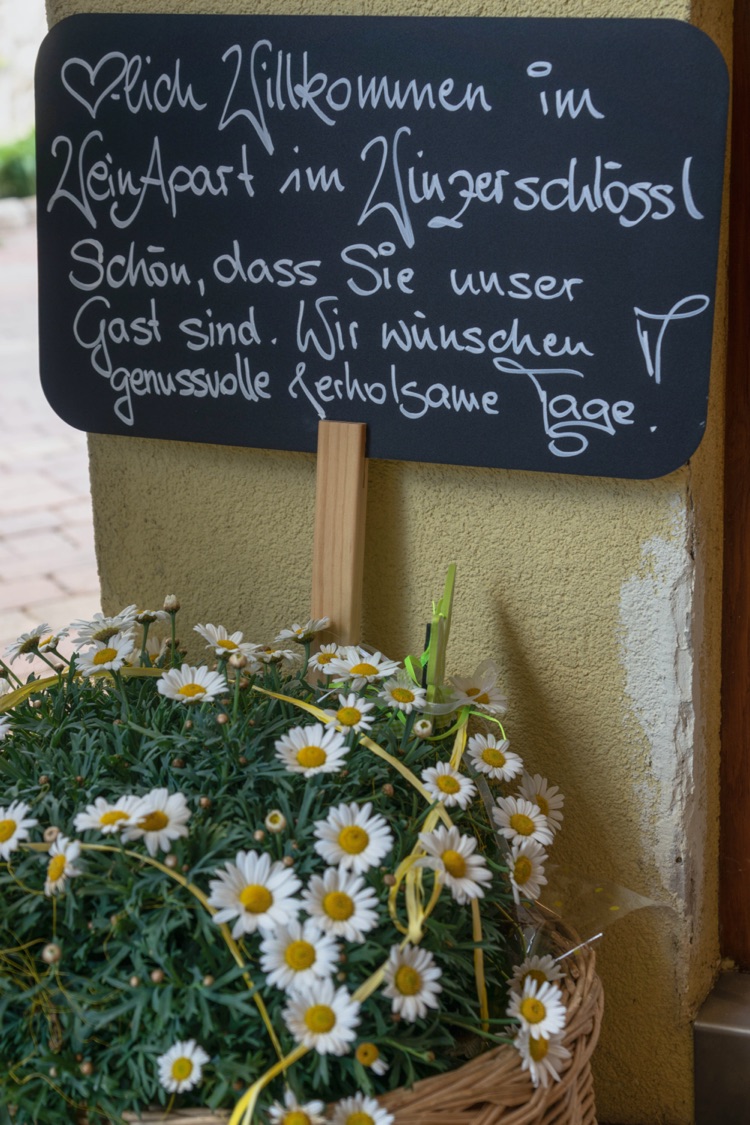 ♡-lich Willkommen im
WeinApart im Winzerschlössl
Schön, dass Sie unser
Gast sind. Wir wünschen
genussvolle & erholsame Tage.